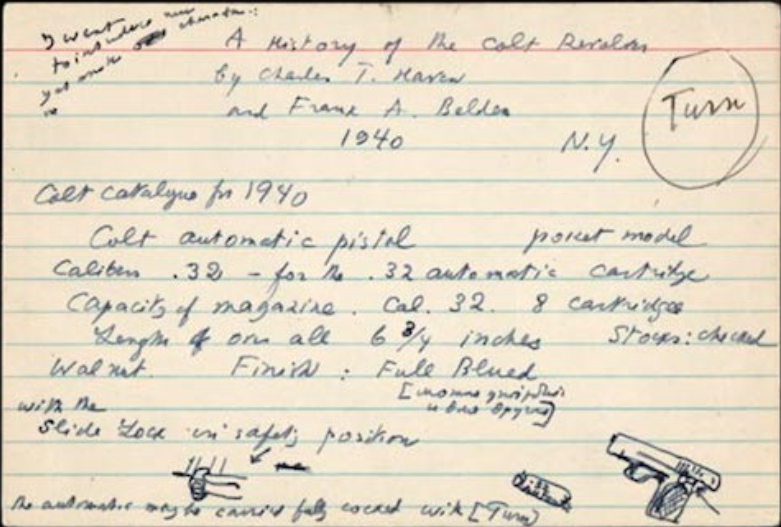 I want
to introduce new character:
yet another
A History of the Colt Revolver
by Charles T. Haven
and Frank A. Belden
1940 N.Y.
Turn
Colt catalogue for 1940
Colt automatic pistol pocket model
Calibers .32 - for the .32 automatic cartridge
Capacity of magazine. Cal. 32. 8 cartridges
Length of over all 6 3/4 inches Stocks: checked
Walnut. Finish: Full Blued
with the
Slide Lock in safety position
the automatic may be carried fully cocked with [Turn]